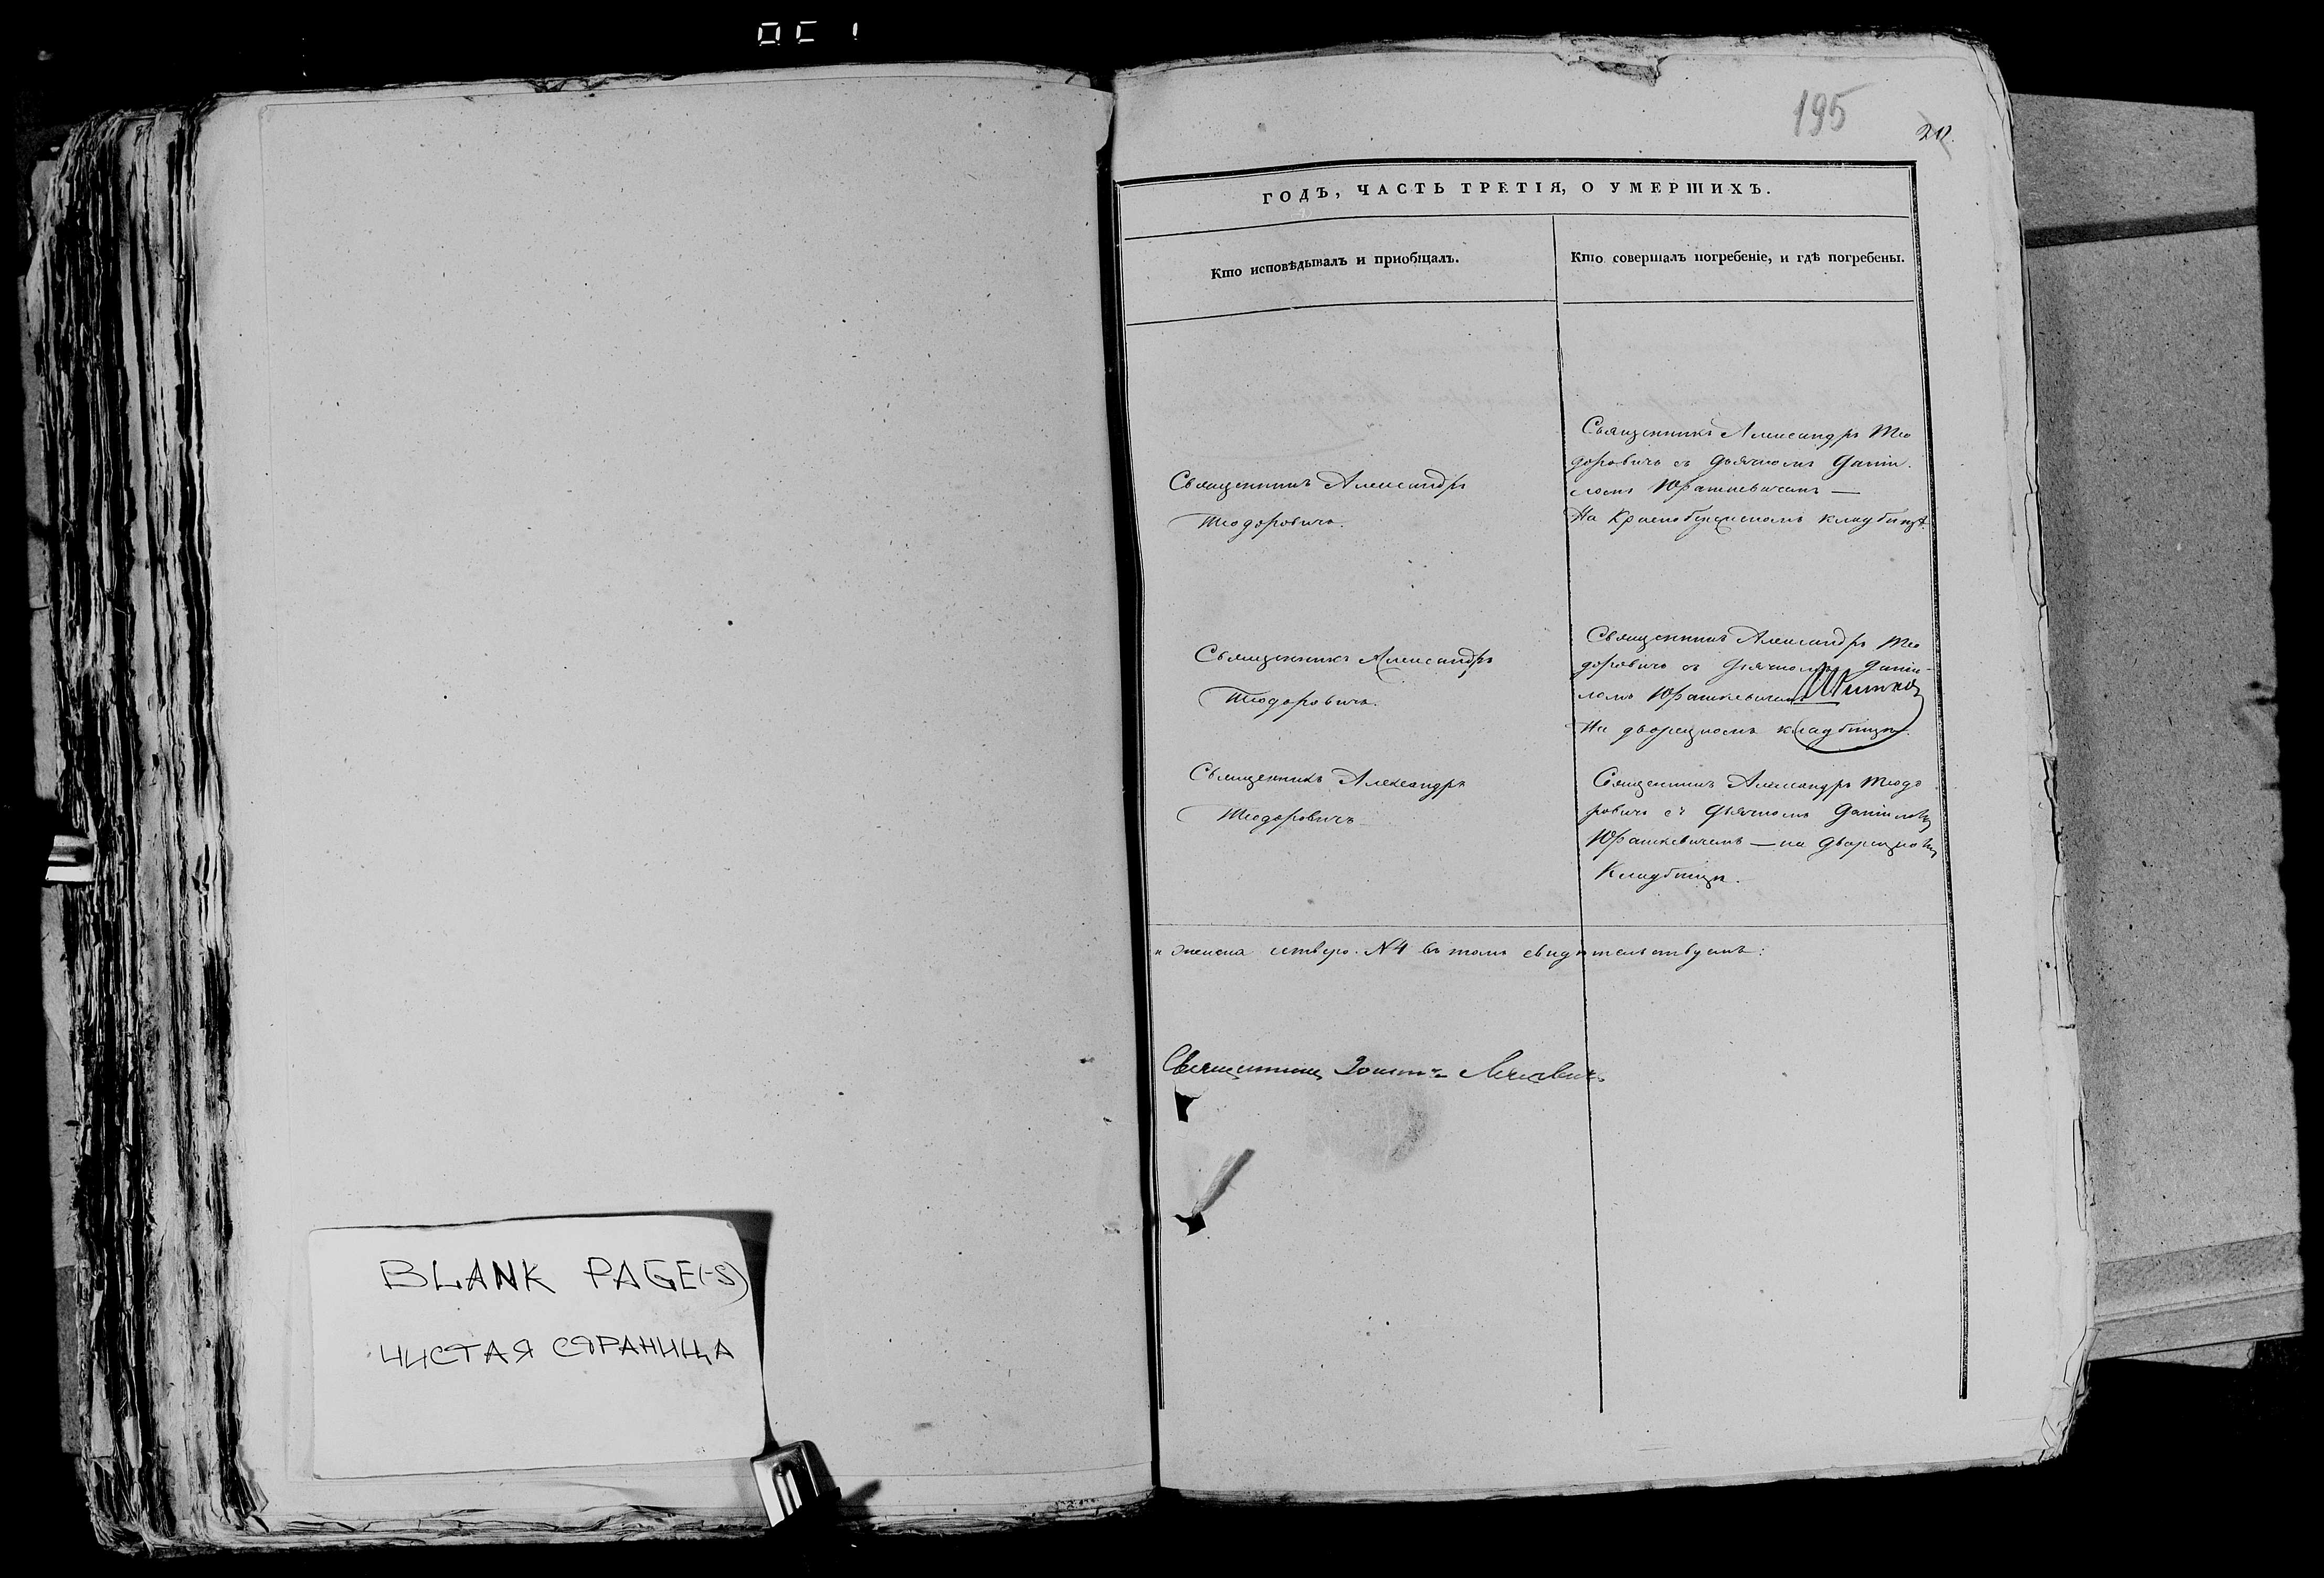 195
212.
ГОДЪ, ЧАСТЬ ТРЕТІЯ, О УМЕРШИХЪ.
Кто исповѣдывалъ и приобщалъ.
Кто совершалъ погребеніе, и гдѣ погребены.
Священникъ Александръ
Теодоровичъ.
Священникъ Александръ Тео
доровичъ съ Дьячкомъ Даніи
ломъ Юрашкевичемъ —
На кладбищѣ
Священникъ Александръ
Теодоровичъ.
Священникъ Александръ Тео
доровичъ съ Дьячкомъ Даніи-
ломъ Юрашкевичемъ
На дворецкомъ кладбищѣ.
Священникъ Александръ
Теодоровичъ
Священникъ Александръ Теодо
ровичъ съ Дьячкомъ Даніиломъ
Юрашкевичемъ — на дворецкомъ
Кладбищѣ.
и женска четверо. №4 въ томъ свидѣтельствуемъ:
Священникъ
BLANK PAGE(-S)
ЧИСТАЯ СТРАНИЦА